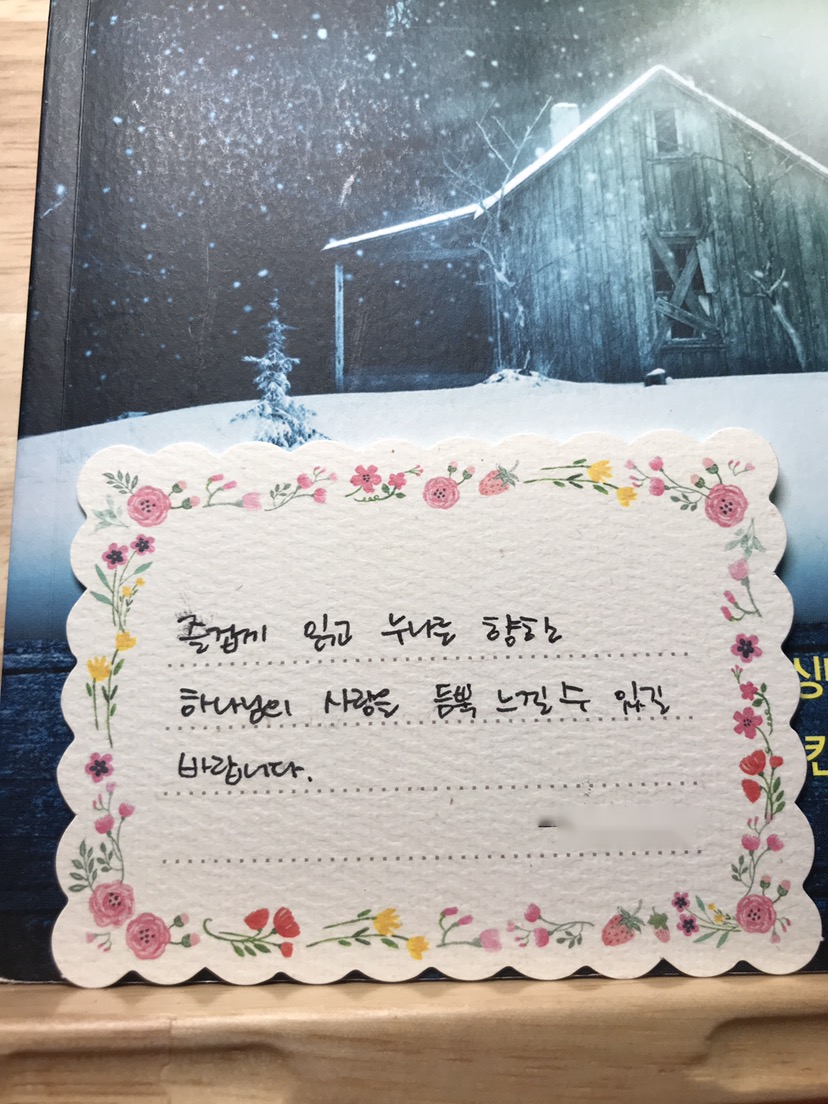 즐겁게 읽고 누나를 향한
하나님의 사랑을 듬뿍 느낄 수 있길
바랍니다.